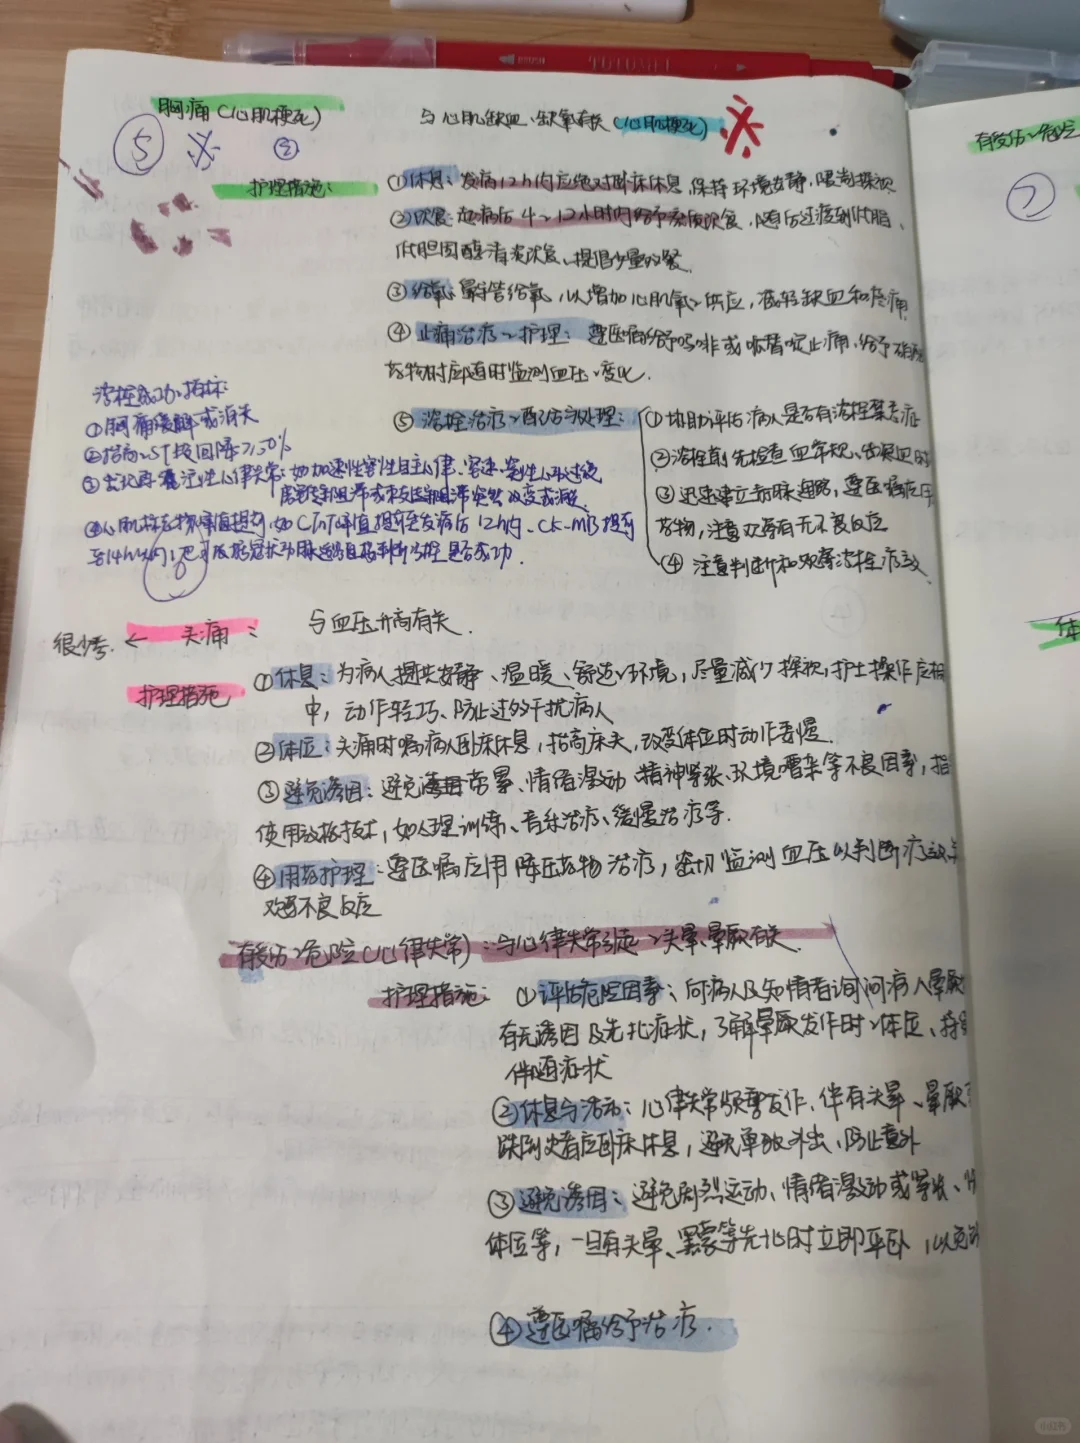 胸痛(心肌梗死) 与心肌缺血、缺氧有关(心肌梗死)
⑤ ②
护理措施:
①休息:发病12h内应绝对卧床休息,保持环境安静,限制探视
②饮食:起病后4~12小时内给予流质饮食,随后过渡到低脂、
低胆固醇清淡饮食、提倡少量多餐.
③给氧:鼻导管给氧,以增加心肌氧供应,减轻缺血和疼痛
④止痛治疗护理:遵医嘱给予吗啡或哌替啶止痛,给予
药物时应随时监测血压变化.
⑤溶栓治疗配合与处理:
①协助评估病人是否有溶栓禁忌症
②溶栓前先检查血常规、出凝血时
③迅速建立静脉通路,遵医嘱应用
药物,注意观察有无不良反应
④注意判断和观察溶栓疗效
溶栓成功指标:
①胸痛缓解或消失
②抬高ST段回降≥50%
③出现再灌注性心律失常:如加速性室性自主心律、
房室传导阻滞或束支传导阻滞突然改变或消失
④心肌标志物峰值提前,如CTnT峰值提前至发病后12h内、CK-MB提前
至14h以内;也可根据冠状动脉造影直接判断溶栓是否成功.
6
很少考. ← 头痛: 与血压升高有关.
护理措施
①休息:为病人提供安静、温暖、舒适环境,尽量减少探视,护士操作应相
中,动作轻巧、防止过多干扰病人
②体位:头痛时嘱病人卧床休息,抬高床头,改变体位时动作要慢.
③避免诱因:避免劳累、情绪激动、精神紧张、环境嘈杂等不良因素,指
使用放松技术,如心理训练、音乐治疗、缓慢治疗等.
④用药护理:遵医嘱应用降压药物治疗,密切监测血压以判断疗效
观察不良反应
有受伤危险(心律失常):与心律失常引起头晕、晕厥有关.
护理措施:①评估危险因素:向病人及知情者询问病人晕厥
有无诱因及先兆症状,了解晕厥发作时体位、持
伴随症状
②休息与活动:心律失常频繁发作,伴有头晕、晕厥
跌倒史者应卧床休息,避免单独外出、防止意外
③避免诱因:避免剧烈运动、情绪激动或紧张、
体位等,一旦有头晕、黑蒙等先兆时立即平卧,以免
④遵医嘱给予治疗.
有受伤危险
⑦
体
小红书